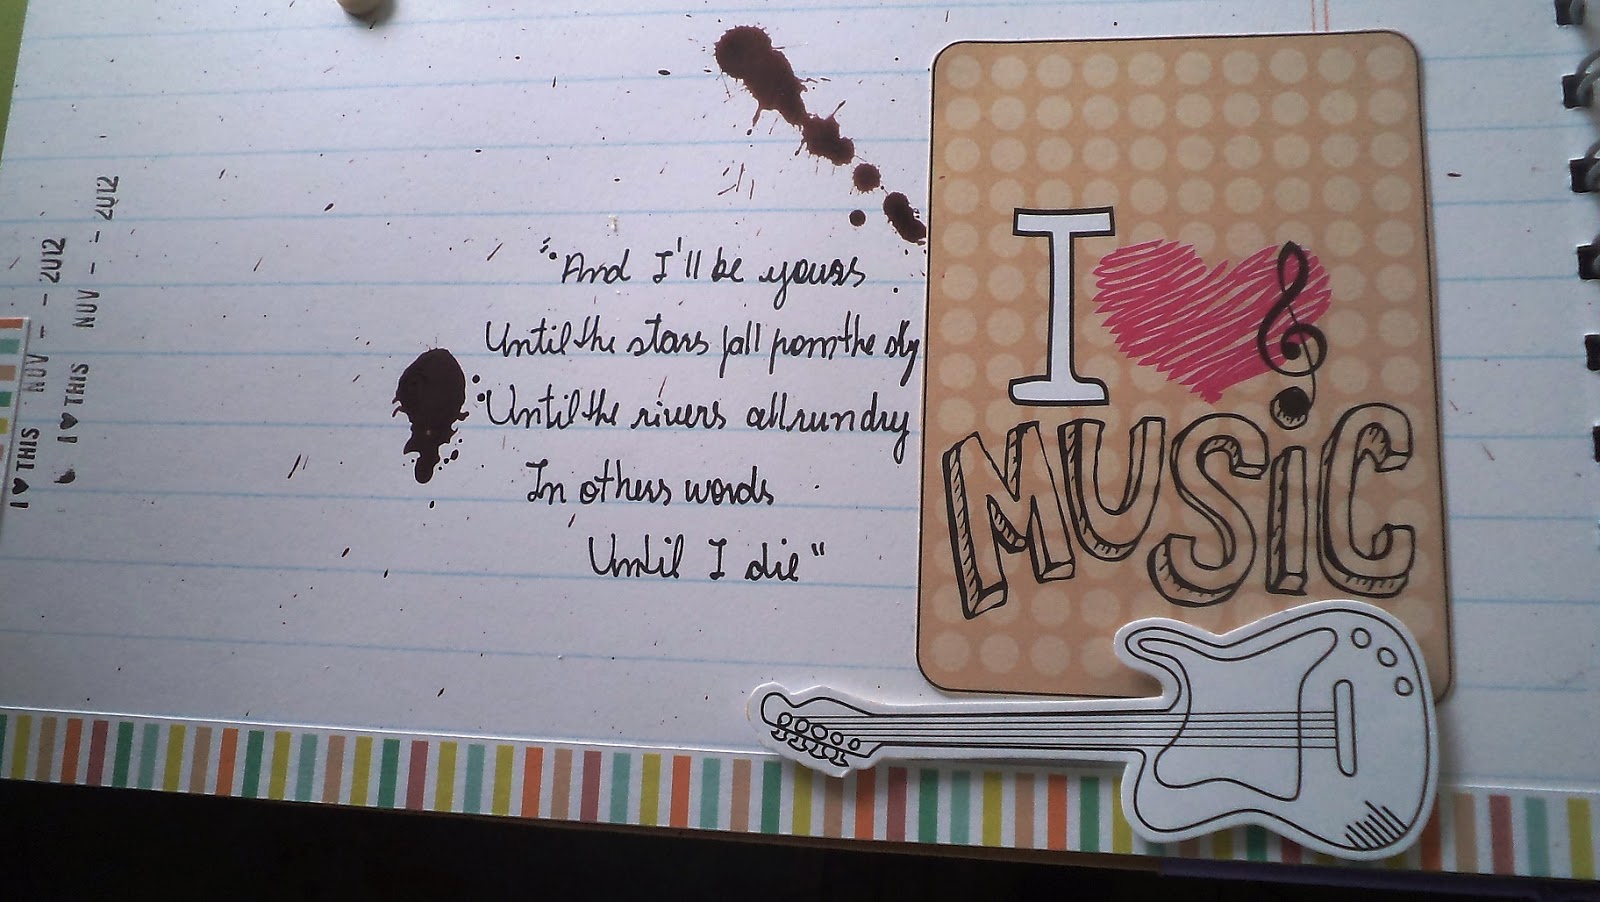 "And I'll be yours
Until the stars fall from the sky
Until the rivers all run dry
In others words
Until I die"
I
MUSiC
I ♥ THIS NOV - - 2012
I ♥ THIS NOV - - 2012